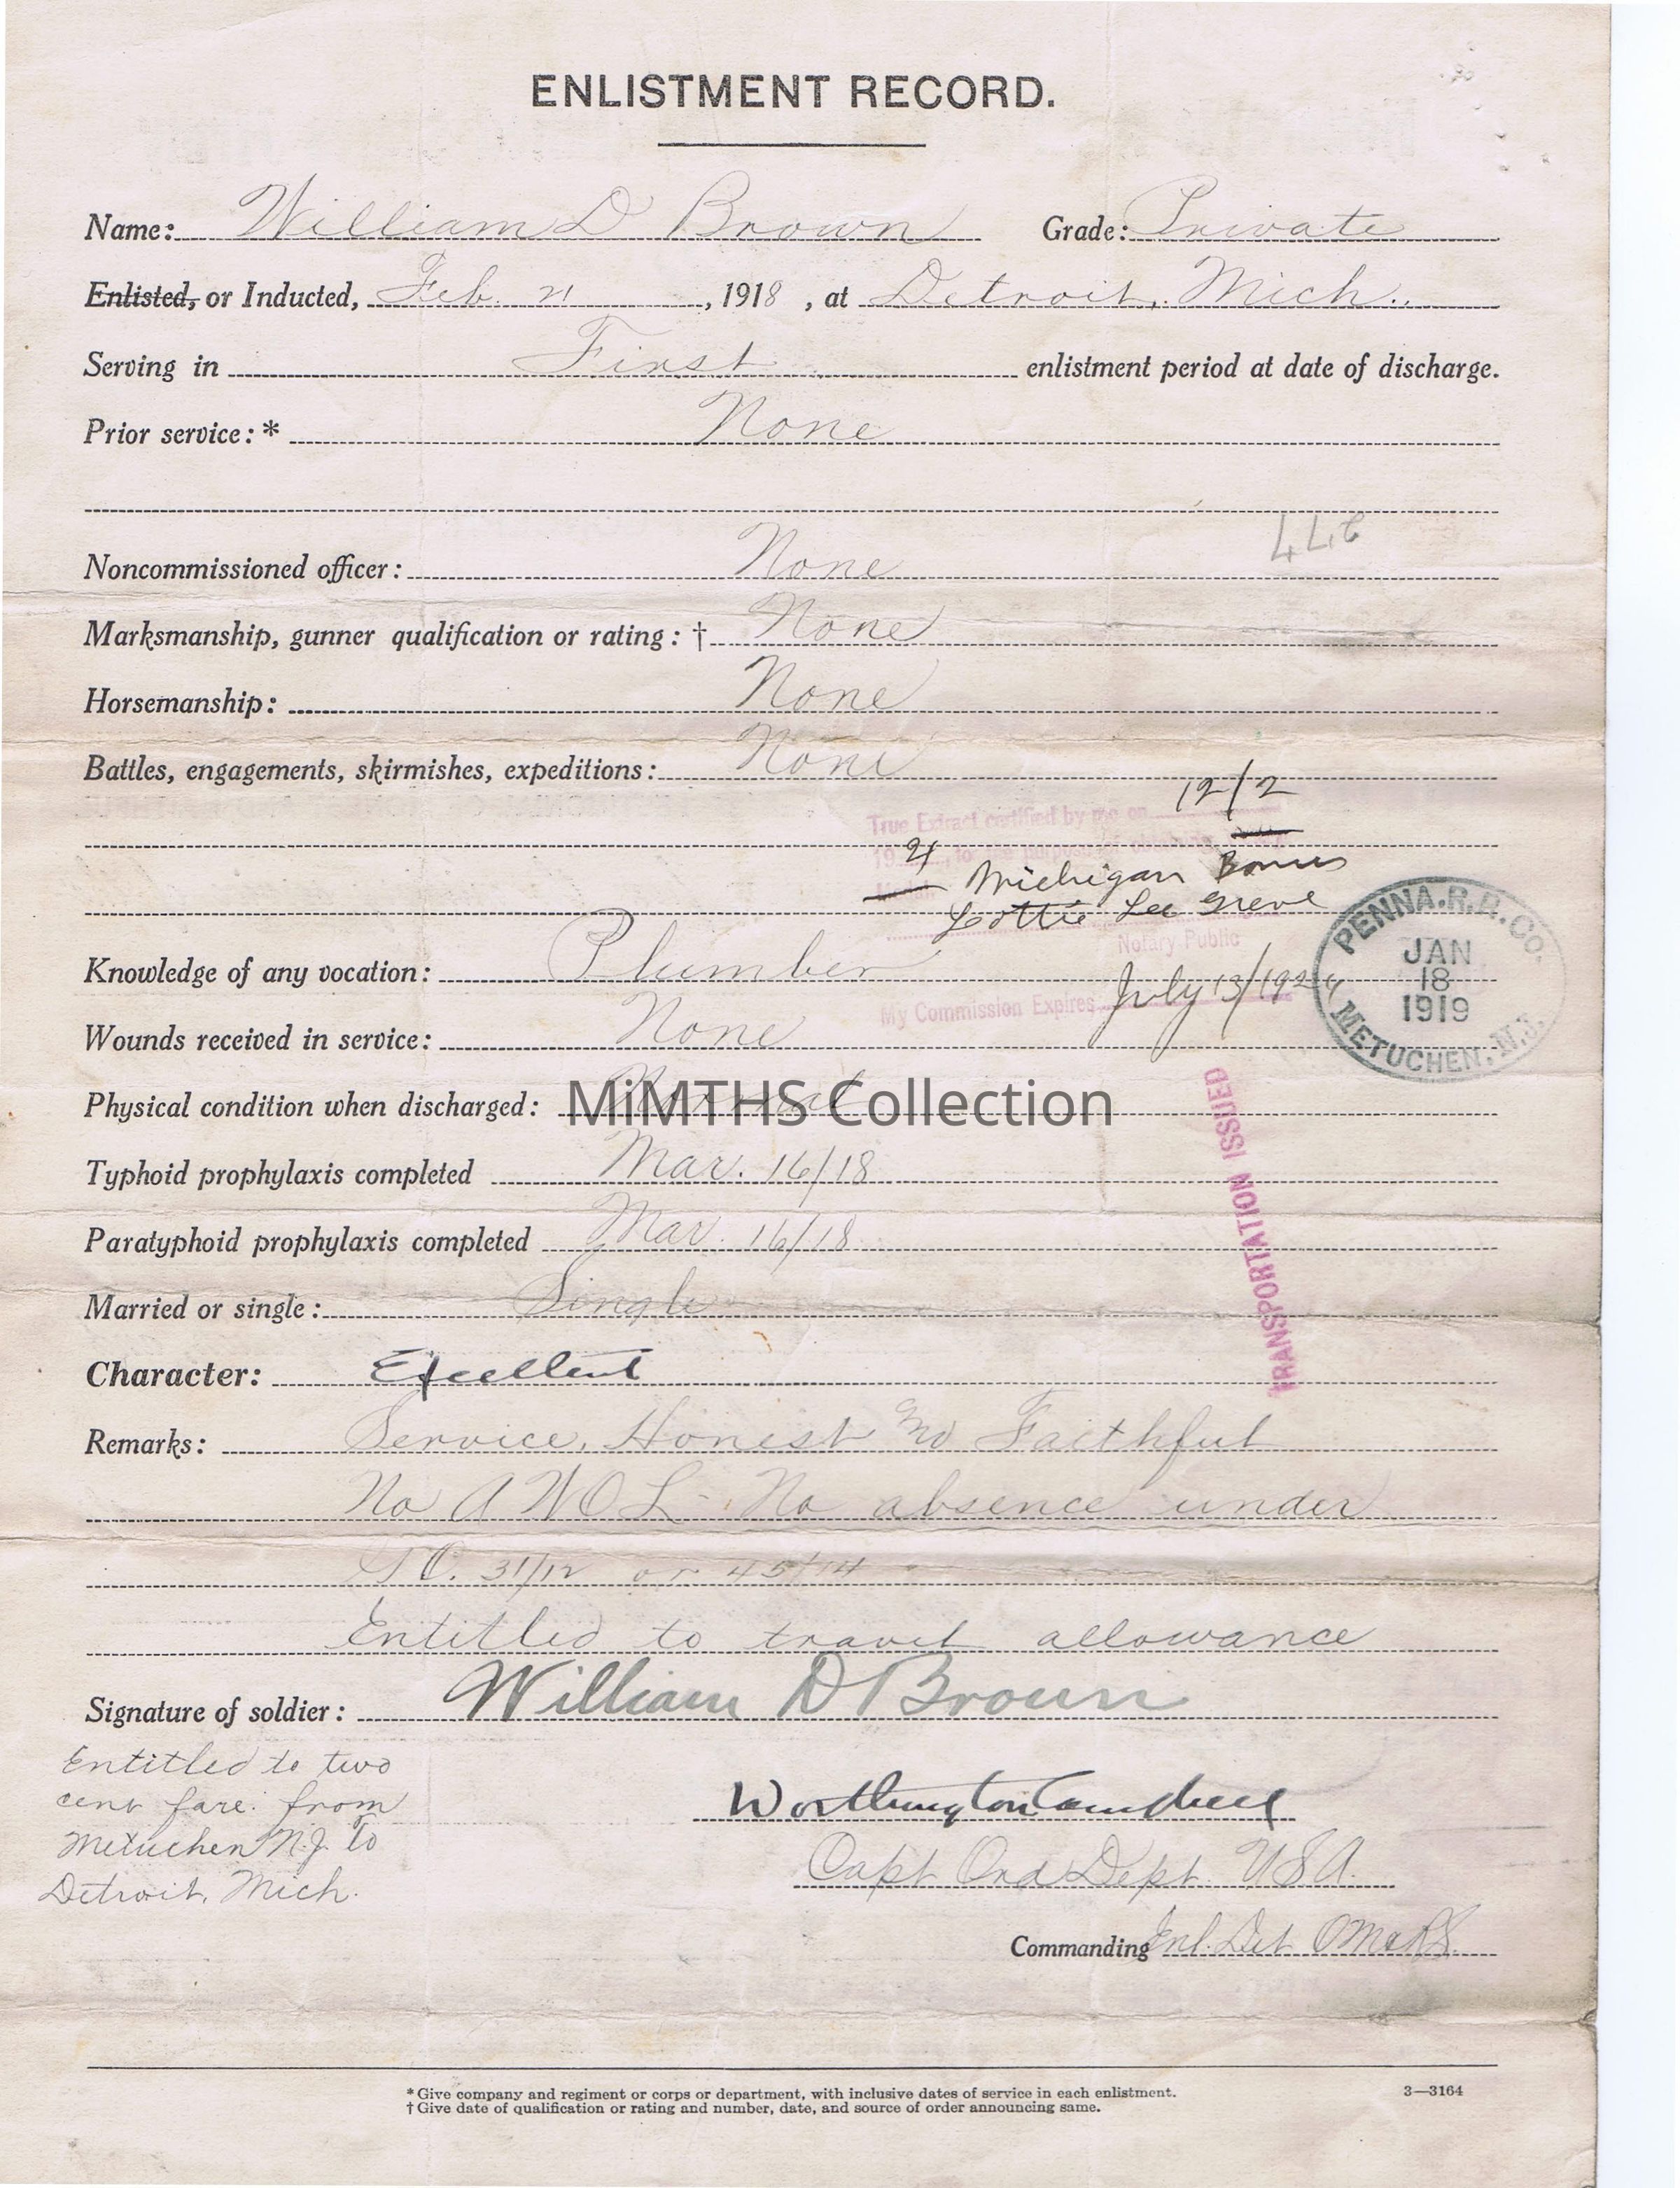 ENLISTMENT RECORD.
Name: William D Brown Grade: Private
Enlisted, or Inducted, Feb. 21, 1918, at Detroit, Mich.
Serving in First enlistment period at date of discharge.
Prior service: * None
Noncommissioned officer: None
Marksmanship, gunner qualification or rating: † None
Horsemanship: None
Battles, engagements, skirmishes, expeditions: None
True Extract certified by me on 12/2
1921, for the purpose of obtaining
Michigan Bonus
Lottie Lee Greve
Notary Public
My Commission Expires July 13/1924
PENNA. R. R. Co.
JAN
18
1919
METUCHEN, N.J.
Knowledge of any vocation: Plumber
Wounds received in service: None
Physical condition when discharged: Normal
MiMTHS Collection
TRANSPORTATION ISSUED
Typhoid prophylaxis completed Mar. 16/18
Paratyphoid prophylaxis completed Mar. 16/18
Married or single: Single
Character: Excellent
Remarks: Service, Honest and Faithful
No AWOL - No absence under
G.O. 31/12 or 45/14
Entitled to travel allowance
Signature of soldier: William D Brown
Entitled to two
cent fare from
Metuchen N.J. to
Detroit, Mich.
Worthington Campbell
Capt Ord Dept. USA.
Commanding Enl. Det
*Give company and regiment or corps or department, with inclusive dates of service in each enlistment.
†Give date of qualification or rating and number, date, and source of order announcing same.
3—3164